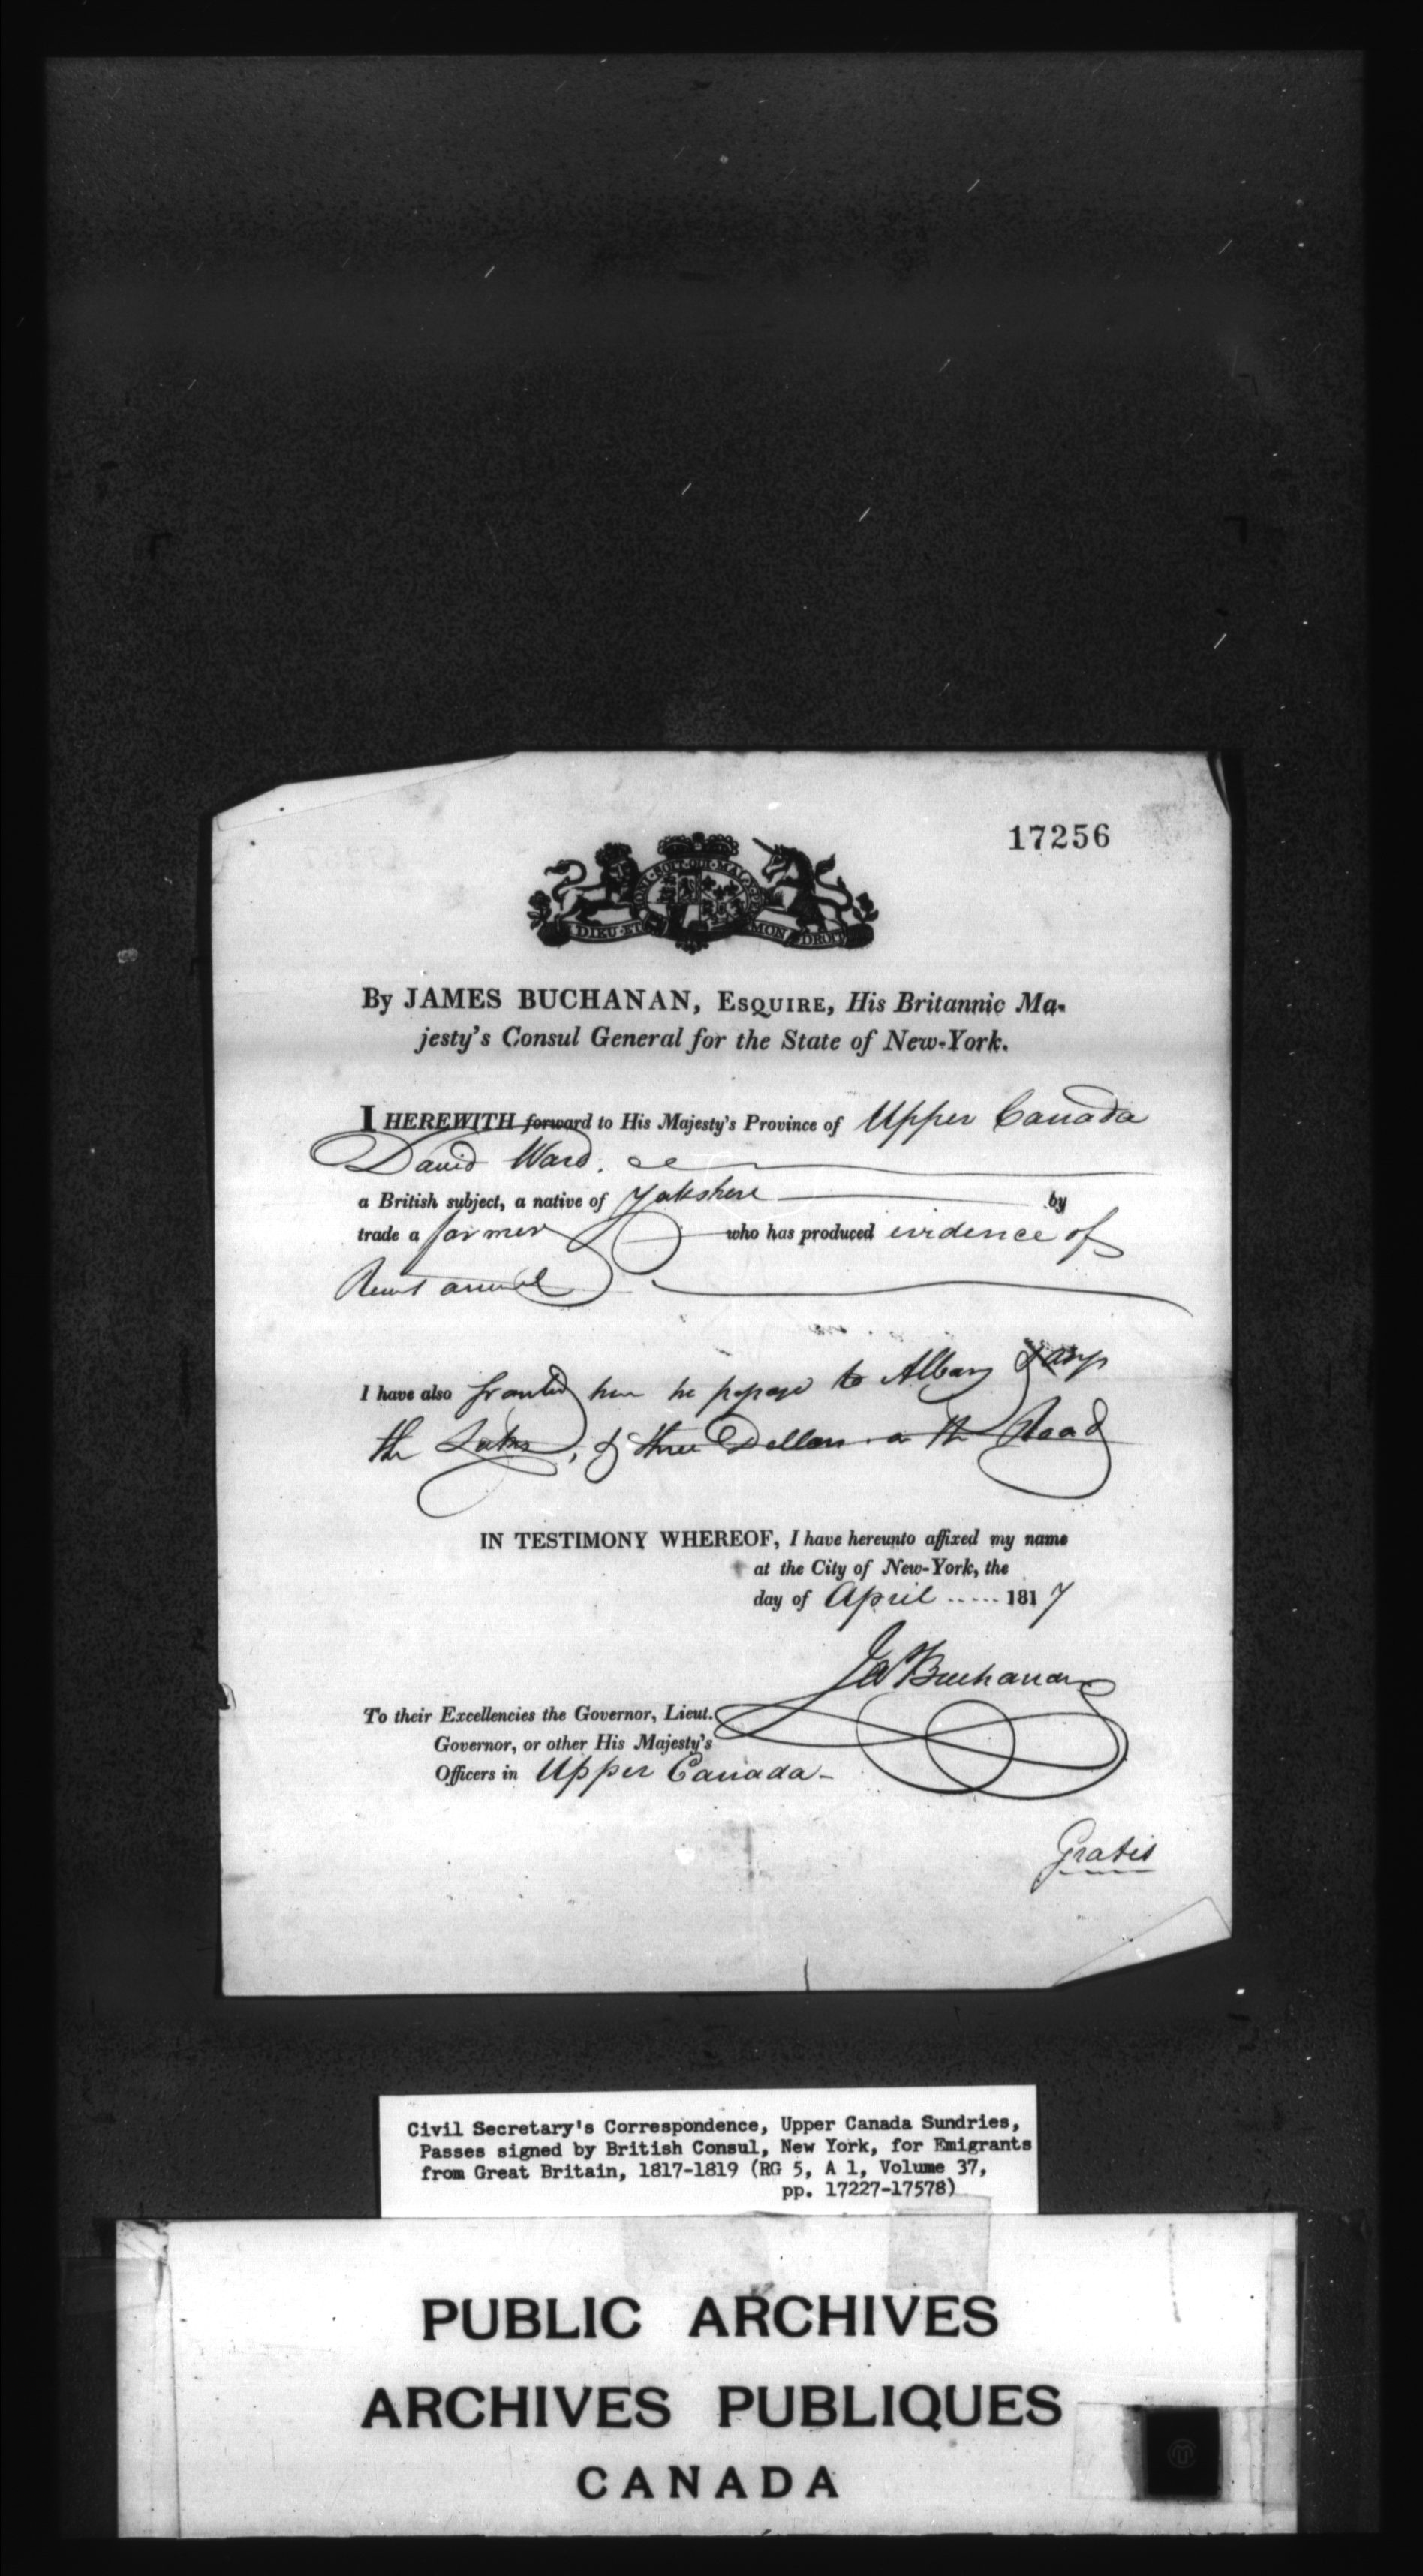 17256
HONI · SOIT · QUI · MAL · Y
DIEU · ET MON DROIT
By JAMES BUCHANAN, ESQUIRE, His Britannic Ma-
jesty's Consul General for the State of New-York.
I HEREWITH forward to His Majesty's Province of Upper Canada
David Ward.
a British subject, a native of Yorkshire by
trade a farmer who has produced evidence of
arrival
I have also granted him to Albany
the Lakes, of three Dollars on the Road
IN TESTIMONY WHEREOF, I have hereunto affixed my name
at the City of New-York, the
day of April ..... 1817
Jas Buchanan
To their Excellencies the Governor, Lieut.
Governor, or other His Majesty's
Officers in Upper Canada-
Gratis
Civil Secretary's Correspondence, Upper Canada Sundries,
Passes signed by British Consul, New York, for Emigrants
from Great Britain, 1817-1819 (RG 5, A 1, Volume 37,
pp. 17227-17578)
PUBLIC ARCHIVES
ARCHIVES PUBLIQUES
CANADA